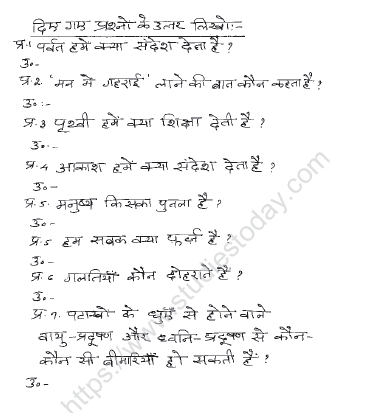 दिए गए प्रश्नो के उत्तर लिखोः-
प्र.1 पर्वत हमे क्या संदेश देता है ?
उ०-
प्र.2 'मन मे गहराई' लाने की बात कौन कहता है ?
उ०:-
प्र.3 पृथ्वी हमें क्या शिक्षा देती है ?
उ०-
प्र.4 आकाश हमें क्या संदेश देता है ?
उ०-
प्र.5. मनुष्य किसका पुतला है ?
उ०-
प्र.5 हम सबक क्या फर्ज है ?
उ०-
प्र.6 गलतियाँ कौन दोहराते है ?
उ०-
प्र.7. पटाखो के धुएँ से होने वाले
वायु-प्रदूषण और ध्वनि-प्रदूषण से कौन-
कौन सी बीमारियाँ हो सकती हैं ?
उ०-
https://www.studiestoday.com